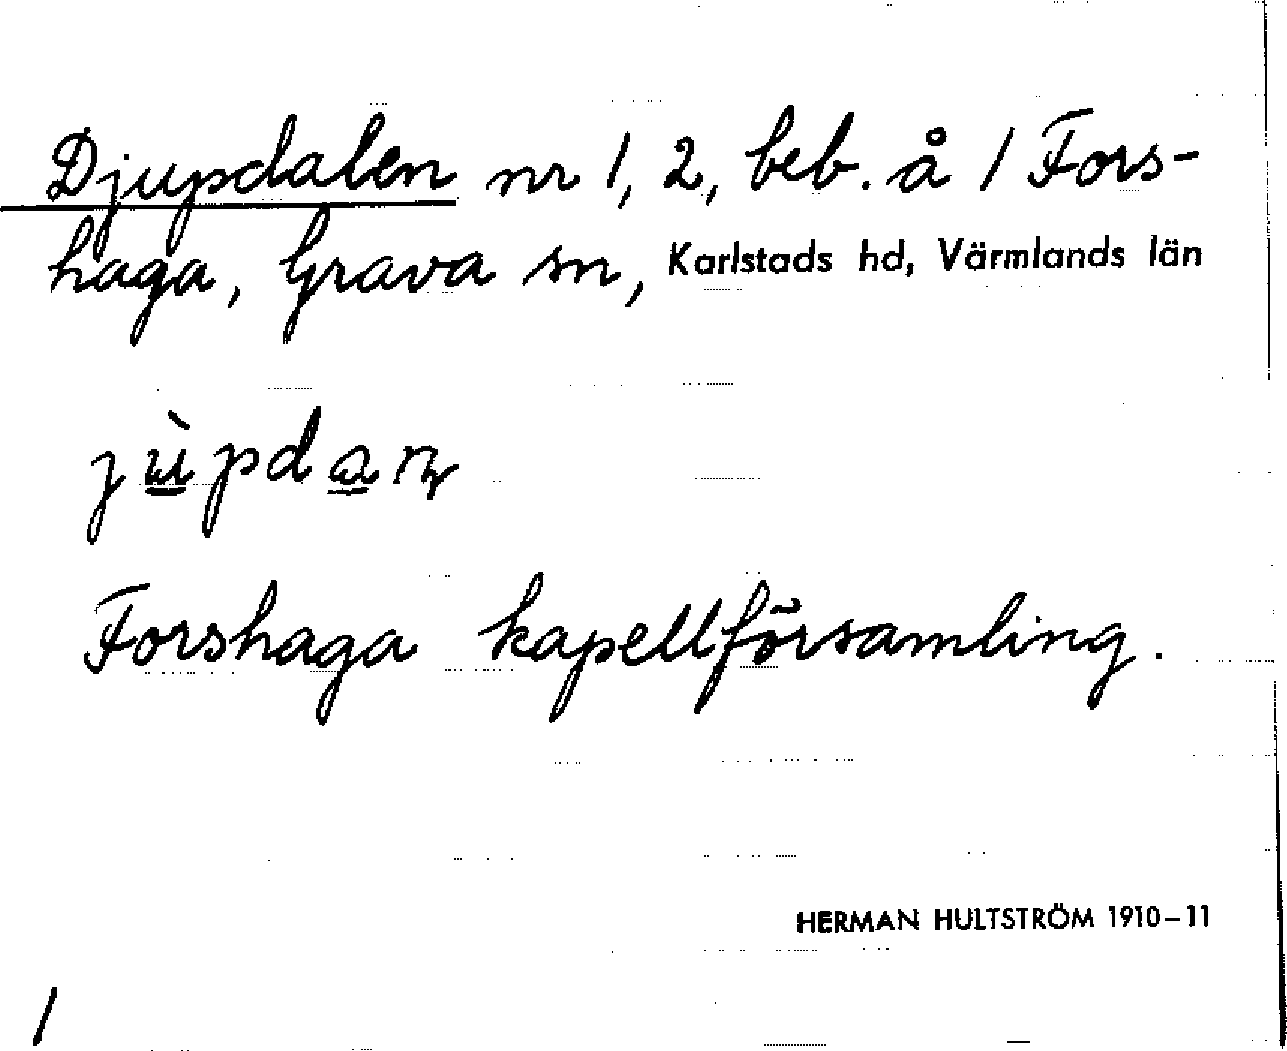 Djupdalen nr 1, 2, beb. å 1 Fors-
haga, Grava sn, Karlstads hd, Värmlands län
Forshaga kapellförsamling.
HERMAN HULTSTRÖM 1910–11
1